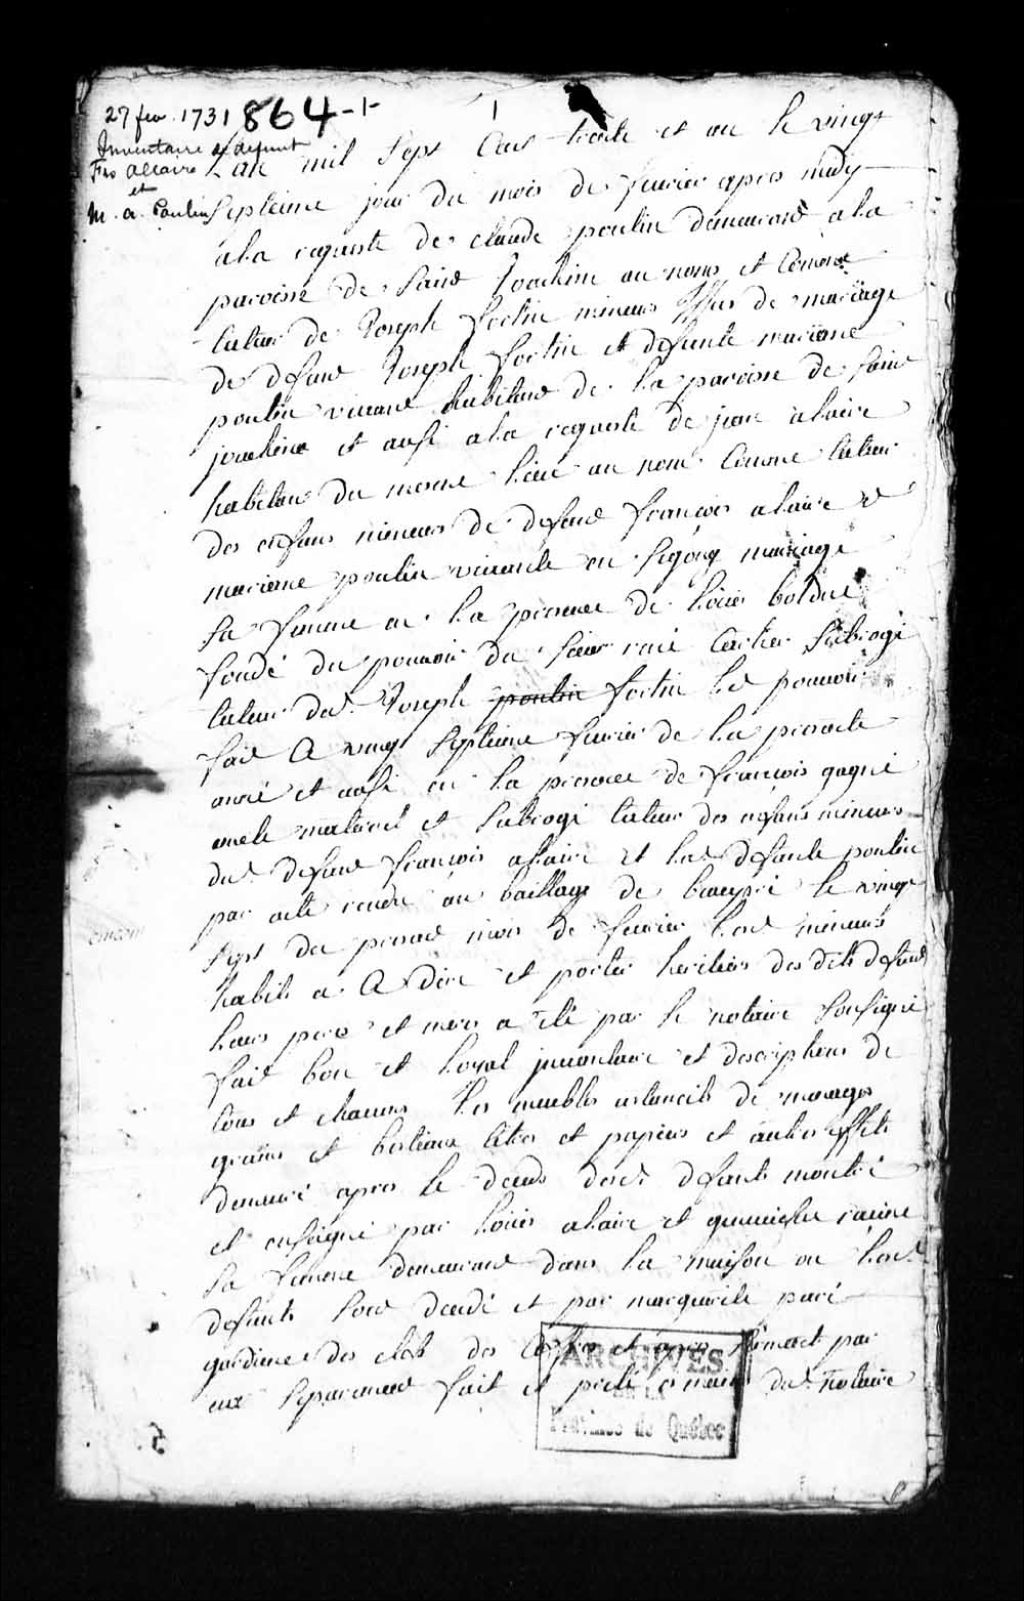 27 fev. 1731 864-1-
1
Inventaire de defunt
Frs Allaire
et
M. a. Poulin
Lan mil Sept Cent trente et un le vingt
Septieme jour du mois de feuvrier apres midy
a la requeste de claude poulin demeurant a la
paroisse de Saint Joachim au nom et Comme
tuteur de Joseph fortin mineur Issus de mariage
de defunt Joseph fortin et defunte mariane
poulin vivant habitant de la paroisse de Saint
joachim et ausi a la requeste de jean alaire
habitant du meme lieu au nom Comme tuteur
des enfans mineurs de defunt françois alaire et
mariane poulin vivante en Segong mariage
Sa femme en la presence de Louis bolduc
fondé du pouvoir du Sieur rené Cartier Subrogé
tuteur dud. Joseph poulin fortin led pouvoir
fait Ce vingt Septieme fevrier de la presente
anné et ausi en la presence de françois gagné
oncle maternel et Subrogé tuteur des enfans mineurs
dud. defunt françois alaire et lad. defunte poulin
par acte rendu au baillage de beaupré le vingt
Sept du present mois de feuvrier lesd mineurs
habils a Ce dire et porter heritiers des dits defunts
leurs pere et mere a été par le notaire Sousigné
fait bon et Loyal jnventaire et description de
tous et chacuns les meubles ustancils de menages
grains et bestiaux titres et papiers et autres effets
demeuré apres le deceds desd. defunts montré
et enseigné par Louis alaire et genevieve racine
Sa femme demeurant dans la maison ou lesd.
defunts Sont decedé et par marguerite paré
gardiene des clefs des Coffres et apres Serment par
eux Separement fait et preté es mains dud. notaire
ARCHIVES
DE LA
Province de Québec